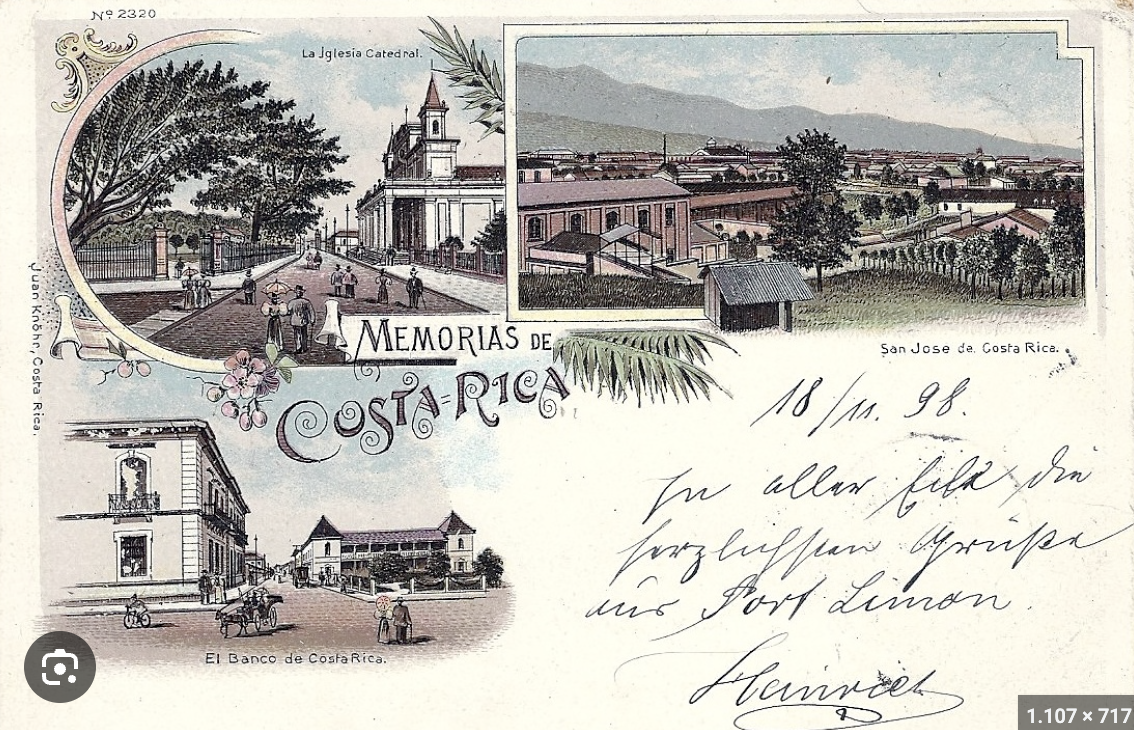 Nº 2320
La Iglesia Catedral.
MEMORIAS DE
COSTA-RICA
San Jose de Costa Rica.
Juan Knöhr, Costa Rica.
El Banco de Costa Rica.
18/11. 98.
In aller Eile die
herzlichsten Grüße
aus Port Limon.
Heinrich
1.107 × 717